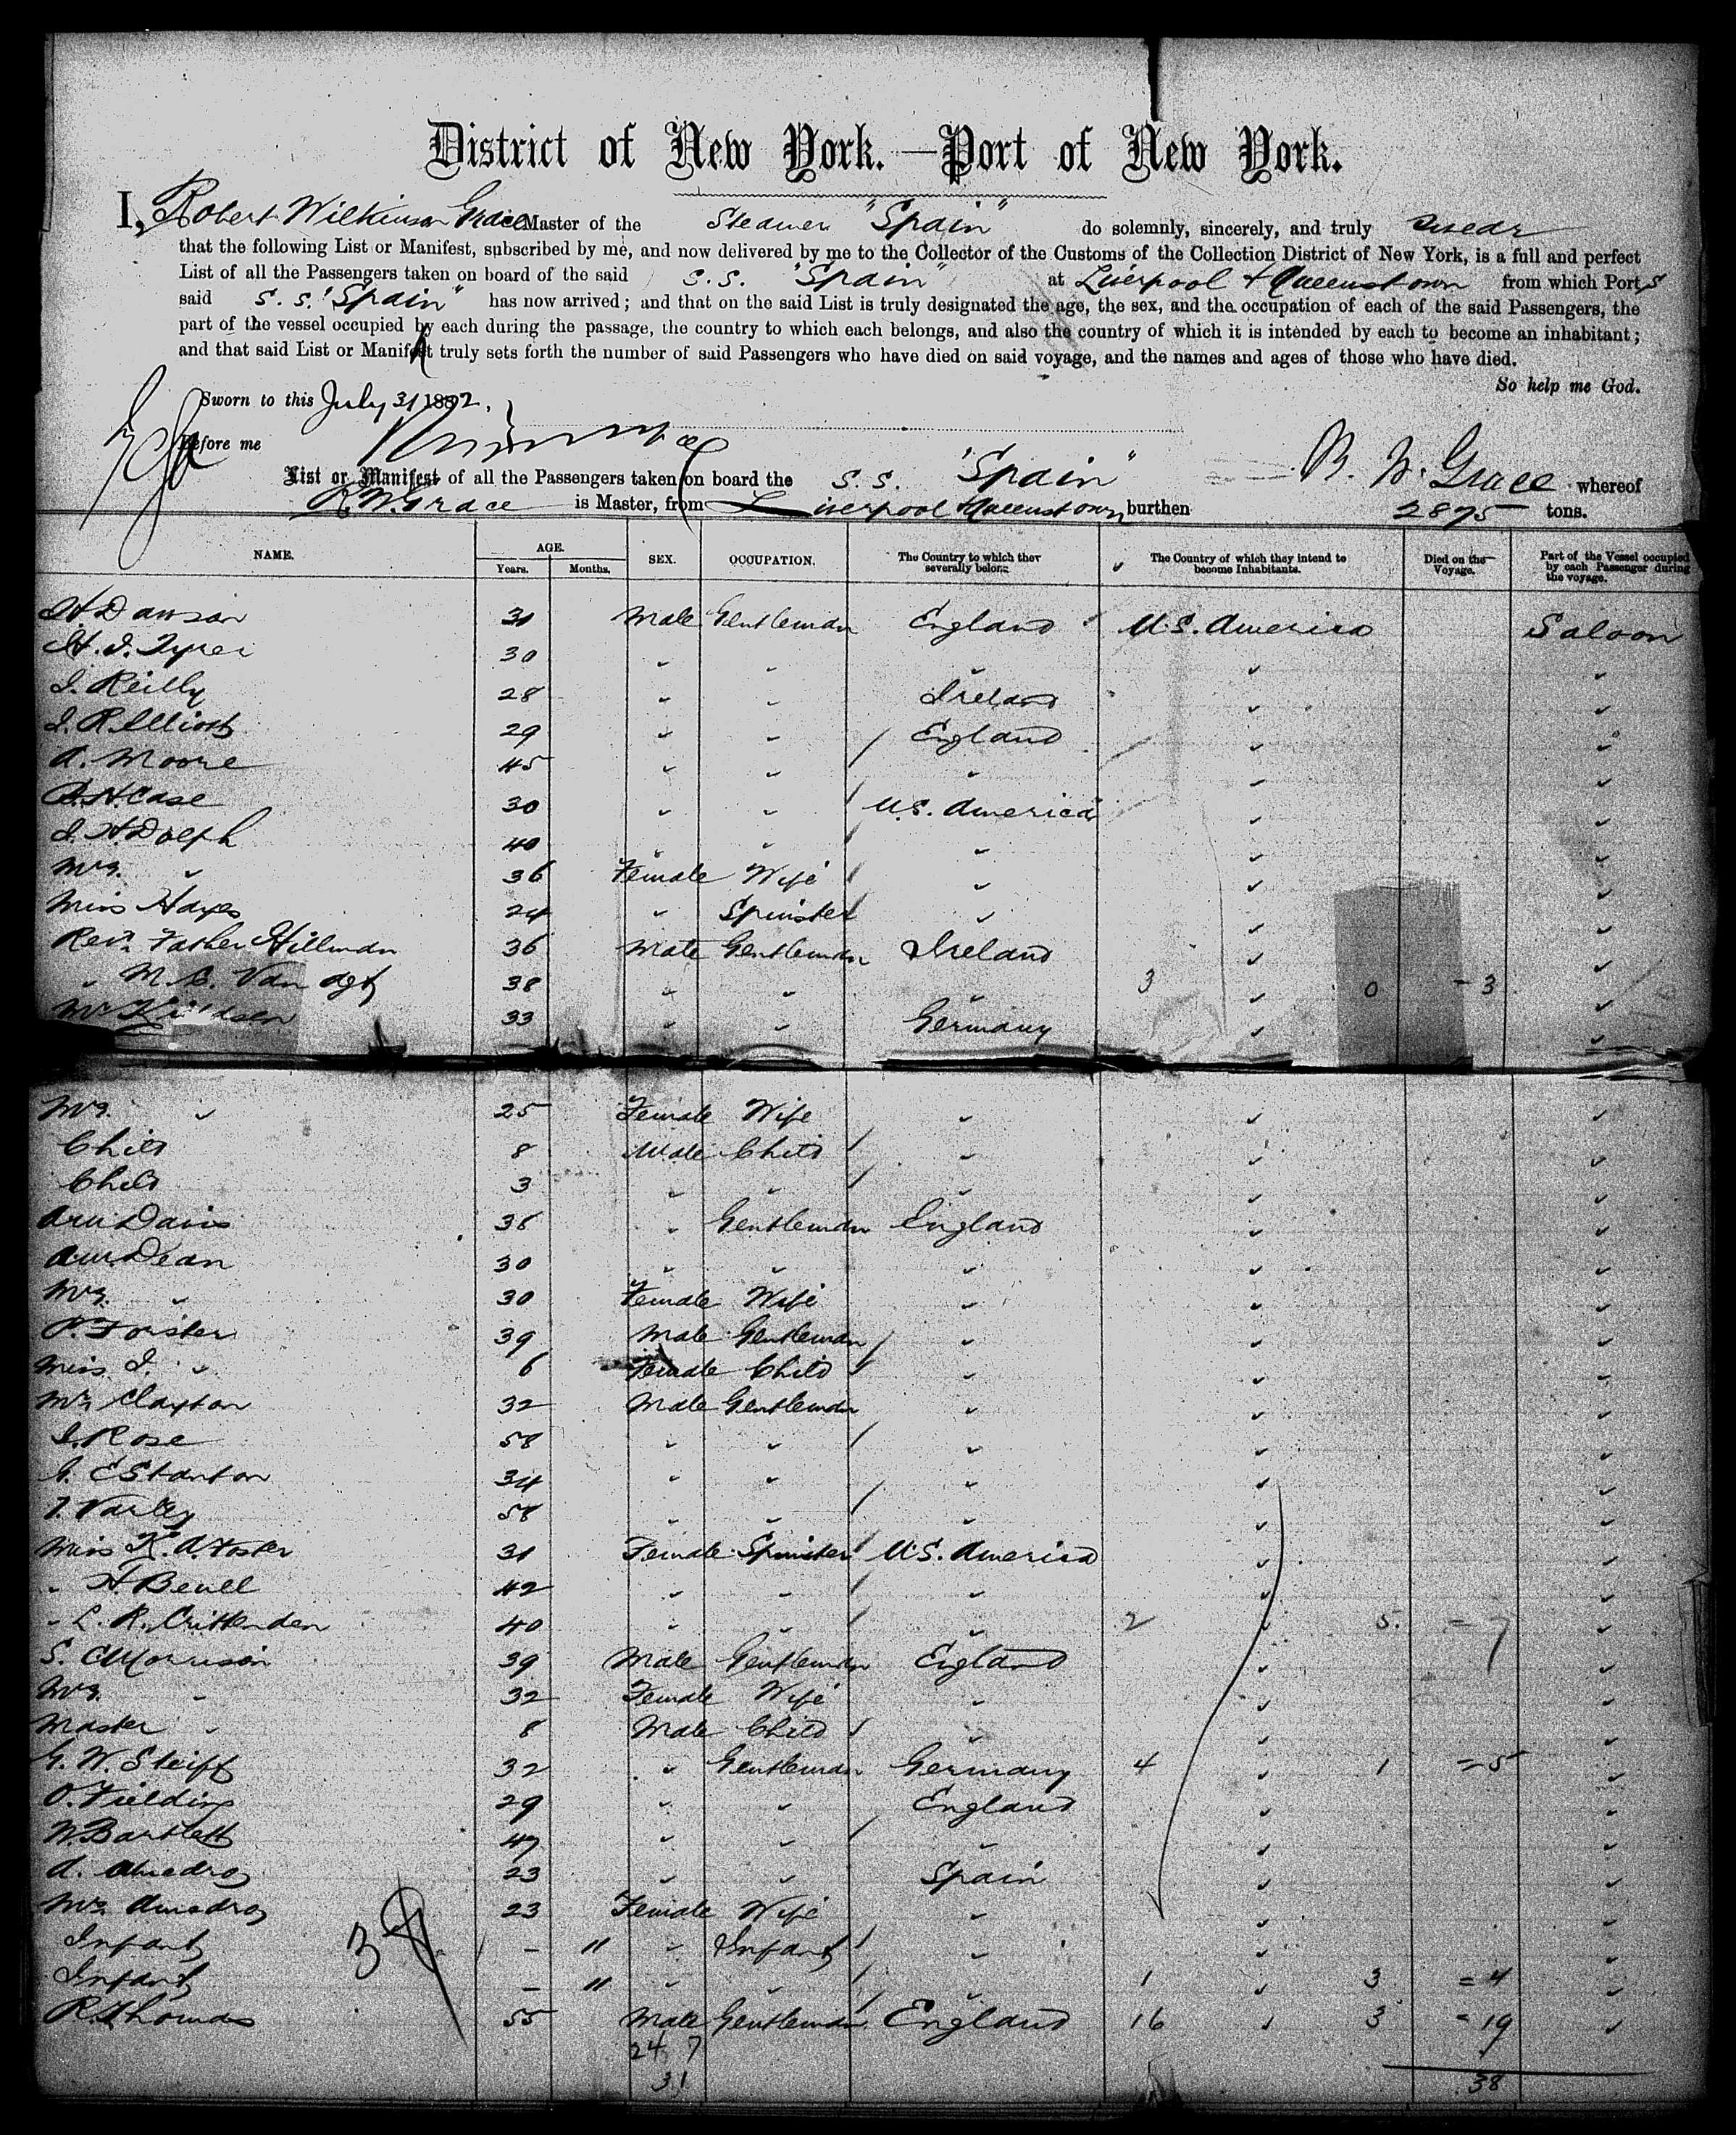 District of New York.—Port of New York.
I, Robert Wilkinson Grace Master of the Steamer "Spain" do solemnly, sincerely, and truly swear
that the following List or Manifest, subscribed by me, and now delivered by me to the Collector of the Customs of the Collection District of New York, is a full and perfect
List of all the Passengers taken on board of the said S.S. "Spain" at Liverpool & Queenstown from which Ports
said S.S. "Spain" has now arrived; and that on the said List is truly designated the age, the sex, and the occupation of each of the said Passengers, the
part of the vessel occupied by each during the passage, the country to which each belongs, and also the country of which it is intended by each to become an inhabitant;
and that said List or Manifest truly sets forth the number of said Passengers who have died on said voyage, and the names and ages of those who have died.
So help me God.
Sworn to this July 31 1882.
Before me
List or Manifest of all the Passengers taken on board the S.S. "Spain" R. W. Grace whereof
R.W. Grace is Master, from Liverpool & Queenstown burthen 2875 tons.
NAME. AGE. Years. Months. SEX. OCCUPATION. The Country to which they severally belong. The Country of which they intend to become Inhabitants. Died on the Voyage. Part of the Vessel occupied by each Passenger during the voyage.
H. Dawson 31 Male Gentleman England U.S. America Saloon
H. J. Tyrer 30 " " " " "
J. Reilly 28 " " Ireland " "
J. R. Elliott 29 " " England " "
A. Moore 45 " " " " "
B. H. Case 30 " " U.S. America " "
J. H. Dolph 40 " " " " "
Mrs. " 36 Female Wife " " "
Miss Hayes 24 " Spinster " " "
Revd. Father Hillman 36 Male Gentleman Ireland " "
" M. C. 38 " " " 3 " 0 - 3 "
Mr 33 " " Germany " "
Mrs. " 25 Female Wife " " "
Child 8 Male Child " " "
Child 3 " " " " "
Davis 36 " Gentleman England " "
Dean 30 " " " " "
Mrs. " 30 Female Wife " " "
P. Forster 39 Male Gentleman " " "
Miss J. " 6 Female Child " " "
Mr. Clayton 32 Male Gentleman " " "
J. Rose 58 " " " " "
G. E Stanton 34 " " " " "
T. Varley 58 " " " " "
Miss K. A. Foster 31 Female Spinster U.S. America " "
" H. Bewell 42 " " " " "
" L. R. Crittenden 40 " " " 2 " 5. = 7 "
S. C Morrison 39 Male Gentleman England " "
Mrs. " 32 Female Wife " " "
Master " 8 Male Child " " "
G. W. Steiff 32 " Gentleman Germany 4 " 1 = 5 "
O. Fielding 29 " " England " "
W. Bartlett 47 " " " " "
A. Amedroz 23 " " Spain " "
Mrs. Amedroz 23 Female Wife " " "
Infant - 11 " Infant " " "
Infant - 11 " " " 1 " 3 = 4 "
R. Thomas 55 Male Gentleman England 16 " 3 = 19 "
38
24 7
31 38